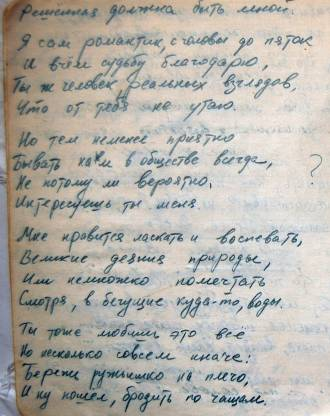 Решённая должна быть мной.
Я сам романтик, с головы до пяток
И в чём судьбу благодарю,
Ты ж человек реальных взглядов,
Что от тебя не утаю.
Но тем неменее приятно
Бывать нам в обществе всегда,
Не потому ли вероятно,
Интересуешь ты меня.
?
Мне нравится ласкать и воспевать,
Великие деяния природы,
Или немножко помечтать
Смотря, в бегущие куда-то, воды.
Ты тоже любишь это всё
Но несколько совсем иначе:
Берёшь ружьишко на плечо,
И ну пошёл, бродить по чащам.